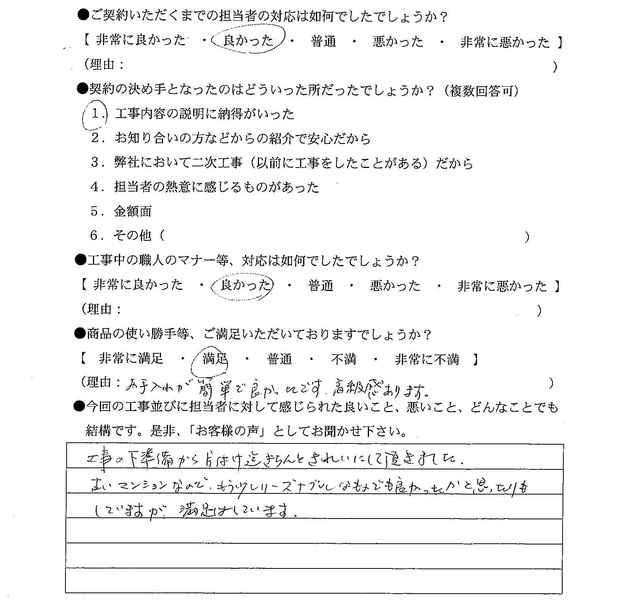 ●ご契約いただくまでの担当者の対応は如何でしたでしょうか？
【 非常に良かった ・ 良かった ・ 普通 ・ 悪かった ・ 非常に悪かった 】
(理由： )
●契約の決め手となったのはどういった所だったでしょうか？（複数回答可）
1．工事内容の説明に納得がいった
2．お知り合いの方などからの紹介で安心だから
3．弊社において二次工事（以前に工事をしたことがある）だから
4．担当者の熱意に感じるものがあった
5．金額面
6．その他（ ）
●工事中の職人のマナー等、対応は如何でしたでしょうか？
【 非常に良かった ・ 良かった ・ 普通 ・ 悪かった ・ 非常に悪かった 】
(理由： )
●商品の使い勝手等、ご満足いただいておりますでしょうか？
【 非常に満足 ・ 満足 ・ 普通 ・ 不満 ・ 非常に不満 】
(理由：お手入れが簡単で良かったです。高級感あります。 )
●今回の工事並びに担当者に対して感じられた良いこと、悪いこと、どんなことでも
結構です。是非、「お客様の声」としてお聞かせ下さい。
工事の下準備から片付け迄きちんときれいにして頂きました。
古いマンションなので、もう少しリーズナブルなものでも良かったかと思ったりも
していますが、満足はしています。